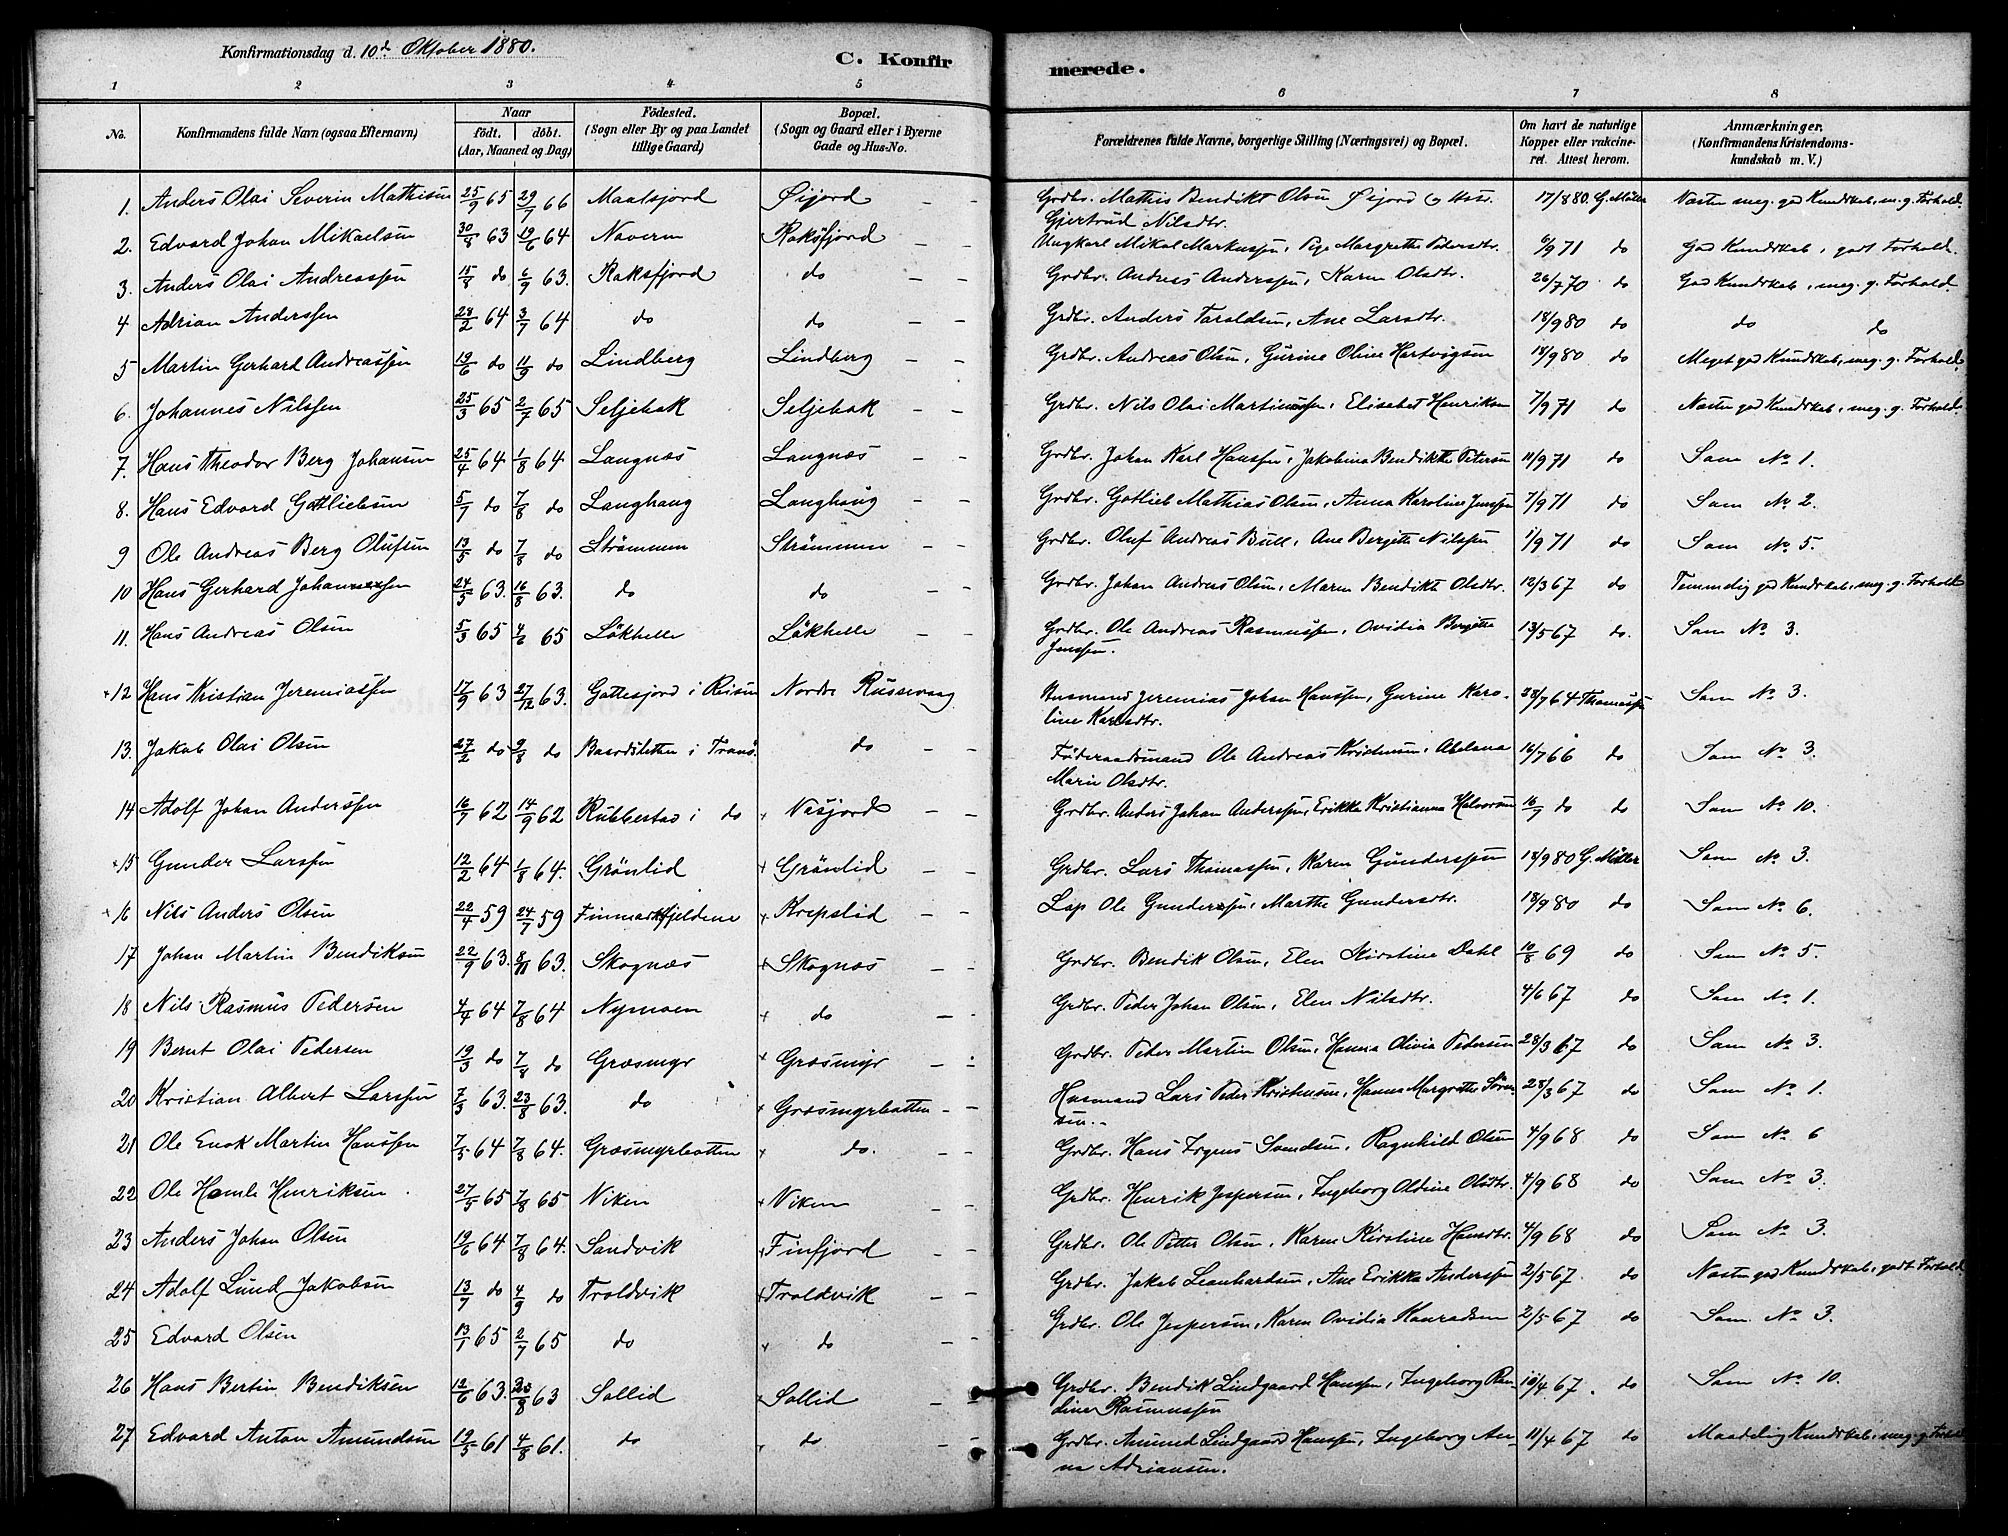 Konfirmationsdag d. 10de Oktober 1880.
C. Konfir
merede.
1 2 3 4 5 6 7 8
No. Konfirmandens fulde Navn (ogsaa Efternavn) Naar födt. döbt. (Aar, Maaned og Dag) Födested. (Sogn eller By og paa Landet tillige Gaard) Bopæl. (Sogn og Gaard eller i Byerne Gade og Hus-No. Forældrenes fulde Navne, borgerlige Stilling (Næringsvei) og Bopæl. Om havt de naturlige Kopper eller vakcineret. Attest herom. Anmærkninger. (Konfirmandens Kristendomskundskab m. V.)
1. Anders Olai Severin Mathisen 25/9 65 29/7 66 Maalsjord Øijord Grdbr. Mathis Bendikt Olsen Øijord og Hstr. 17/8 80. G. Möller Næsten meg. god Kundskab, m. g. Forhold.
Gjertrud Nilsdtr.
2. Edvard Johan Mikaelsen 30/8 63 19/6 64 Navern Raksfjord Ungkarl Mikal Markussen, Pige Margrethe Pedersdtr. 6/9 71 do God Kundskab, godt Forhold.
3. Anders Olai Andreassen 15/8 do 6/9 63. Raksfjord do Grdbr. Andreas Anderssen, Karen Olsdtr. 26/7 70 do God Kundskab, meg. g. Forhold.
4 Adrian Anderssen 28/2 64 3/7 64 do do Grdbr. Anders Taraldsen, Ane Larsdtr. 18/9 80 do do do
5 Martin Gerhard Andreassen 19/6 do 11/9 do Lindberg Lindberg Grdbr. Andreas Olsen, Gurine Oline Hartvigsen 18/9 80 do Meget god Kundskab, meg. g. Forhold
6. Johannes Nilssen 25/3 65 2/7 65 Seljebak Seljebak Grdbr. Nils Olai Martinussen, Elisabet Henriksen 7/9 71 do Næsten god Kundskab, meg. g. Forhold.
7. Hans Theodor Berg Johansen 25/4 64 1/8 64 Langnæs Langnæs Grdbr. Johan Karl Hanssen, Jakobina Bendikte Petersen 11/9 71 do Som No 1.
8. Hans Edvard Gotliebsen 5/7 do 7/8 do Langhaug Langhaug Grdbr. Gotlieb Mathias Olsen, Anna Karoline Jenssen 7/9 71 do Som No 2.
9 Ole Andreas Berg Olufsen 13/5 do 7/8 do Strömmen Strömmen Grdbr. Oluf Andreas Bull, Ane Bergitte Nilssen 1/9 71 do Som No 5.
10 Hans Gerhard Johannessen 24/5 63. 16/8 63. do do Grdbr. Johan Andreas Olsen, Maren Bendikte Olsdtr. 12/3 67 do Temmelig god Kundskab, meg. g. Forhold
11. Hans Andreas Olsen 5/3 65 4/6 65 Lökhelle Lökhelle Grdbr. Ole Andreas Rasmussen, Ovidia Bergitte 13/5 67 do. Som No 3.
Jenssen.
12 Hans Kristian Jeremiassen 17/9 63 27/12 63. Gottesjord i Reisen Nordre Russevaag Husmand Jeremias Johan Hanssen, Gurine Karo- 28/7 64 Thomassen Som No 3.
line Karlsdtr.
13. Jakob Olai Olsen 27/2 do 9/8 do Baardsletten i Trans. do Föderaadsmand Ole Andreas Kristensen, Abelana 16/7 66 do Som No 3.
Marie Olsdtr.
14 Adolf Johan Anderssen 16/7 62 14/9 62 Rubbestad i do Næsjord Grdbr. Anders Johan Anderssen, Erikke Kristianna Halvorsen 16/7 do do Som No 10.
15 Gunder Larssen 12/2 64 1/8 64. Grönlid Grönlid Grdbr. Lars Thomassen, Karen Gunderssen 18/9 80 G. Möller Som No 3.
16 Nils Anders Olsen 22/4 59 24/7 59 Finmarksfjeldene Krepslid Lap Ole Gundersen, Marthe Gundersdtr. 18/9 80 do Som No 6.
17 Johan Martin Bendiksen 22/9 63. 8/11 63. Skognæs Skognæs Grdbr. Bendik Olsen, Elen Kirstine Dahl 10/8 69 do Som No 5.
18 Nils Rasmus Pedersen 4/4 64 7/8 64 Nymoen do Grdbr. Peder Johan Olsen, Elen Nilsdtr. 4/6 67 do Som No 1.
19 Bernt Olai Pedersen 19/3 do 7/8 do Græsmyr Græsmyr Grdbr. Peder Martin Olsen, Hanna Olivia Pedersen 28/3 67 do Som No 3.
20 Kristian Albert Larssen 7/3 63. 23/8 63. do Græsmyrbotten Husmand Lars Peder Kristensen, Hanna Margrethe Sören- 28/3 67 do Som No 1.
sen.
21 Ole Enok Martin Hanssen 7/5 64 7/8 64. Græsmyrbotten do. Grdbr. Hans Irgens Svendsen, Ragnhild Olsen 4/9 68 do Som No 6
22 Ole Hemle Henriksen 27/5 65 7/8 65 Viken Viken Grdbr. Henrik Jespersen, Ingeborg Oldine Olsdtr. 4/9 68 do Som No 3.
23 Anders Johan Olsen 19/6 64 7/8 64. Sandvik Finfjord Grdbr. Ole Petter Olsen, Karen Kirstine Hansdtr. 4/9 68 do Som No 3.
24 Adolf Lund Jakobsen 13/7 do 4/9 do Troldvik Troldvik Grdbr. Jakob Leonhardsen, Ane Erikke Anderssen 2/5 67. do Næsten god Kundskab, godt Forhold
25 Edvard Olsen 13/1 65 2/7 65 do do Grdbr. Ole Jespersen, Karen Ovidia Konradsen 2/5 67 do Som No 3.
26 Hans Bertin Bendiksen 12/6 63. 23/8 63 Sollid Sollid Grdbr. Bendik Lindgaard Hanssen, Ingeborg Ran- 10/4 67. do Som No 10.
dine Rasmussen
27 Edvard Anton Amundsen 19/5 61 4/8 61. do do Grdbr. Amund Lindgaard Hanssen, Ingeborg An- 11/4 67 do Maadelig Kundskab, meg. g. Forhold
na Adriansen.